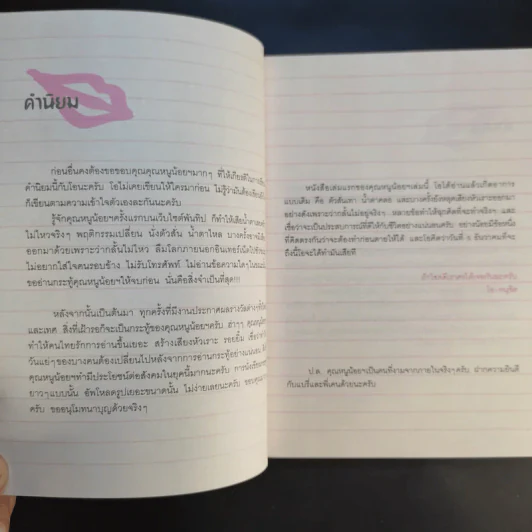 คำนิยม
ก่อนอื่นคงต้องขอขอบคุณคุณหนูน้อยฯมากๆ ที่ให้เกียรติในการเขียน
คำนิยมนี้กับโอนะครับ โอไม่เคยเขียนให้ใครมาก่อน ไม่รู้ว่ามันต้องเขียน
ก็เขียนตามความเข้าใจตัวเองละกันนะครับ
รู้จักคุณหนูน้อยฯครั้งแรกบนเว็บไซต์พันทิป ก็ทำให้เสียน้ำตา
ไม่ไหวจริงๆ พฤติกรรมเปลี่ยน นั่งตัวสั่น น้ำตาไหล บางครั้งอาจ
ออกมาด้วยเพราะว่ากลั้นไม่ไหว ลืมโลกภายนอกอินเทอร์เน็ตไป
ไม่อยากใส่ใจคนรอบข้าง ไม่รับโทรศัพท์ ไม่อ่านข้อความใดๆ
ขออ่านกระทู้คุณหนูน้อยฯให้จบก่อน นั่นคือสิ่งจำเป็นที่สุด!!!
หลังจากนั้นเป็นต้นมา ทุกครั้งที่มีงานประกาศผลรางวัลต่างๆ
และเทศ สิ่งที่เฝ้ารอก็จะเป็นกระทู้ของคุณหนูน้อยฯครับ ฮ่าๆๆ คุณหนู
ทำให้คนไทยรักการอ่านขึ้นเยอะ สร้างเสียงหัวเราะ รอยยิ้ม
วันแย่ๆของบางคนต้องเปลี่ยนไปหลังจากการอ่านกระทู้อย่าง
คุณหนูน้อยฯทำมีประโยชน์ต่อสังคมในยุคนี้มากนะครับ การนั่ง
ยาวๆแบบนั้น อัพโหลดรูปเยอะขนาดนั้น ไม่ง่ายเลยนะครับ
ครับ ขออนุโมทนาบุญด้วยจริงๆ
หนังสือเล่มแรกของคุณหนูน้อยฯเล่มนี้ โอได้อ่านแล้วเกิดอาการ
แบบเดิม คือ ตัวสั่นเทา น้ำตาคลอ และบางครั้งยังหลุดเสียงหัวเราะออกมา
อย่างดังเพราะว่ากลั้นไม่อยู่จริงๆ หลายข้อทำให้ฉุกคิดที่จะทำจริงๆ และ
เชื่อว่าจะเป็นประสบการณ์ที่ดีให้กับชีวิตอย่างแน่นอนครับ
ที่คิดตรงกันว่าจะต้องทำก่อนตายให้ได้
ถึงนี้โอจะได้ทำมันเสียที
ป.ล. คุณหนูน้อยฯเป็นคนที่งามจากภายในจริงๆครับ ฝากความยินดี
กับแบรี่และพี่เคนด้วยนะครับ